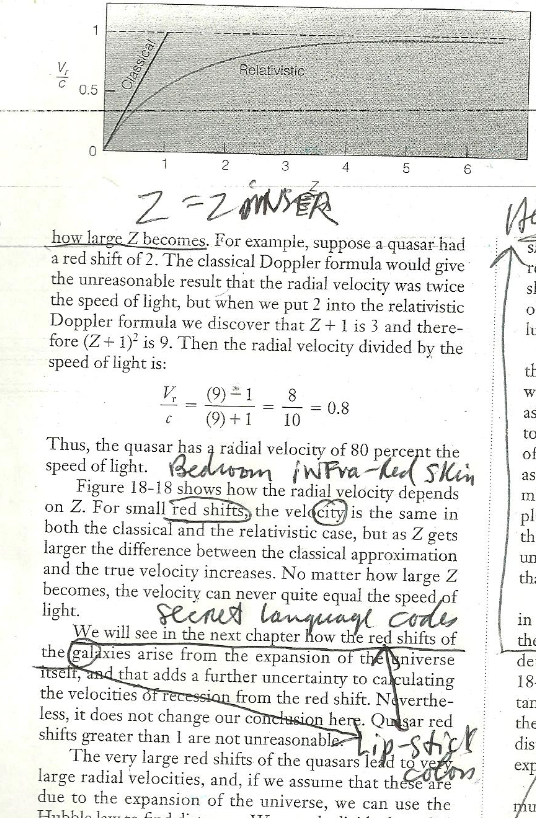 1
Classical
Relativistic
Vr
c
0.5
0
1 2 3 4 5 6
Z
Z = ZiNNSER
how large Z becomes. For example, suppose a quasar had
a red shift of 2. The classical Doppler formula would give
the unreasonable result that the radial velocity was twice
the speed of light, but when we put 2 into the relativistic
Doppler formula we discover that Z + 1 is 3 and there-
fore (Z + 1)² is 9. Then the radial velocity divided by the
speed of light is:
Vr/c = (9) − 1/(9) + 1 = 8/10 = 0.8
Thus, the quasar has a radial velocity of 80 percent the
speed of light.
Bedroom iNFra-Red SKin
Figure 18-18 shows how the radial velocity depends
on Z. For small red shifts, the velocity is the same in
both the classical and the relativistic case, but as Z gets
larger the difference between the classical approximation
and the true velocity increases. No matter how large Z
becomes, the velocity can never quite equal the speed of
light.
secret language codes
We will see in the next chapter how the red shifts of
the galaxies arise from the expansion of the universe
itself, and that adds a further uncertainty to calculating
the velocities of recession from the red shift. Neverthe-
less, it does not change our conclusion here. Quasar red
shifts greater than 1 are not unreasonable.
Lip-stick
colors
The very large red shifts of the quasars lead to very
large radial velocities, and, if we assume that these are
due to the expansion of the universe, we can use the
th
w
as
to
of
as
m
pl
th
un
tha
in
the
de
18-
tan
the
dis
exp
mu